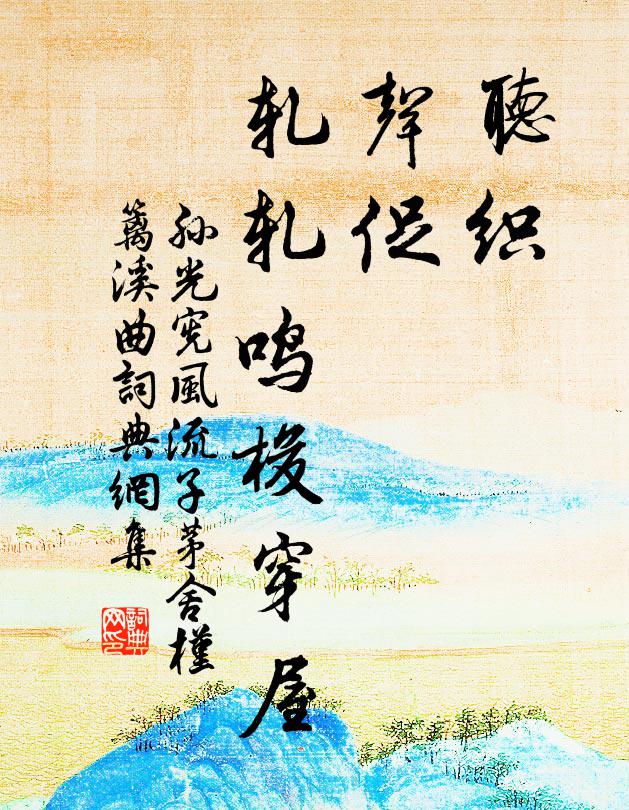 聽织
聲促
轧轧鸣梭穿屋
孙光宪風流子茅舍槿
篱溪曲詞典網集
詞典
网印